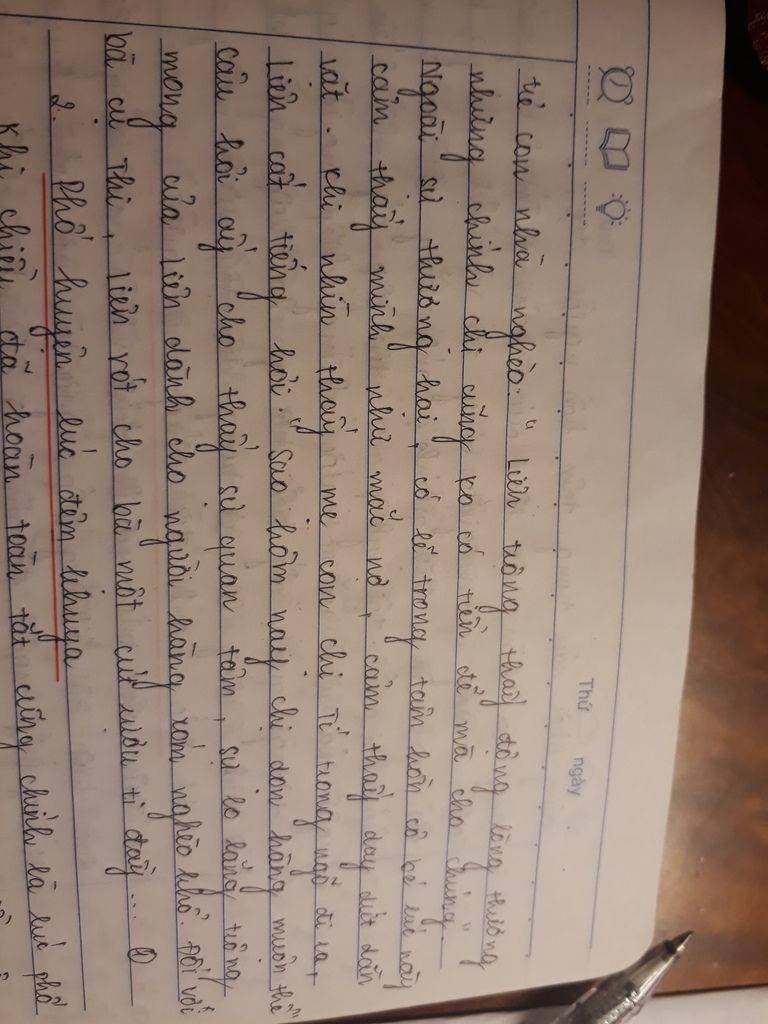 Thứ ngày
trẻ con nhà nghèo: " Liên trông thấy động lòng thương
những chính chị cũng ko có tiền để mà cho chúng "
Ngoài sự thương hại, có lẽ trong tâm hồn cô bé lúc này
cảm thấy mình như mắc nợ, cảm thấy day dứt dằn
vặt. Khi nhìn thấy mẹ con chị Tí trong ngõ đi ra,
Liên cất tiếng hỏi: "Sao hôm nay chị dọn hàng muộn thế"
câu hỏi ấy cho thấy sự quan tâm, sự lo lắng trông
mong của Liên dành cho người hàng xóm nghèo khổ. Đối với
bà cụ Thi, Liên rót cho bà một cút rượu ti đầy ...
2. Phố huyện lúc đêm khuya
Khi chiều đã hoàn toàn tắt cũng chính là lúc phố